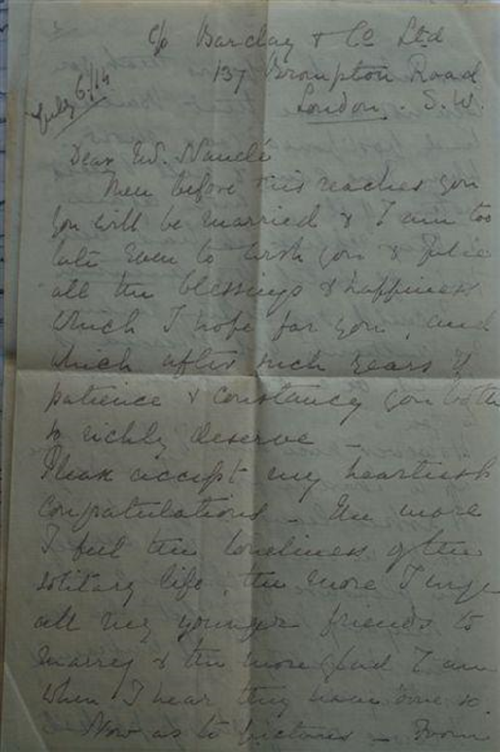 c/o Barclay & Co Ltd
137 Brompton Road
London. S.W.
July 6/14
Dear
before this reaches you
you will be married & I am too
late even to wish you & Julie
all the blessings & happiness
which I hope for you, and
which after such years of
patience & constancy you both
so richly deserve –
Please accept my heartiest
congratulations – The more
I feel the loneliness of the
solitary life, the more I urge
all my younger friends to
marry & the more glad I am
when I hear they have done so.
Now as to pictures – From